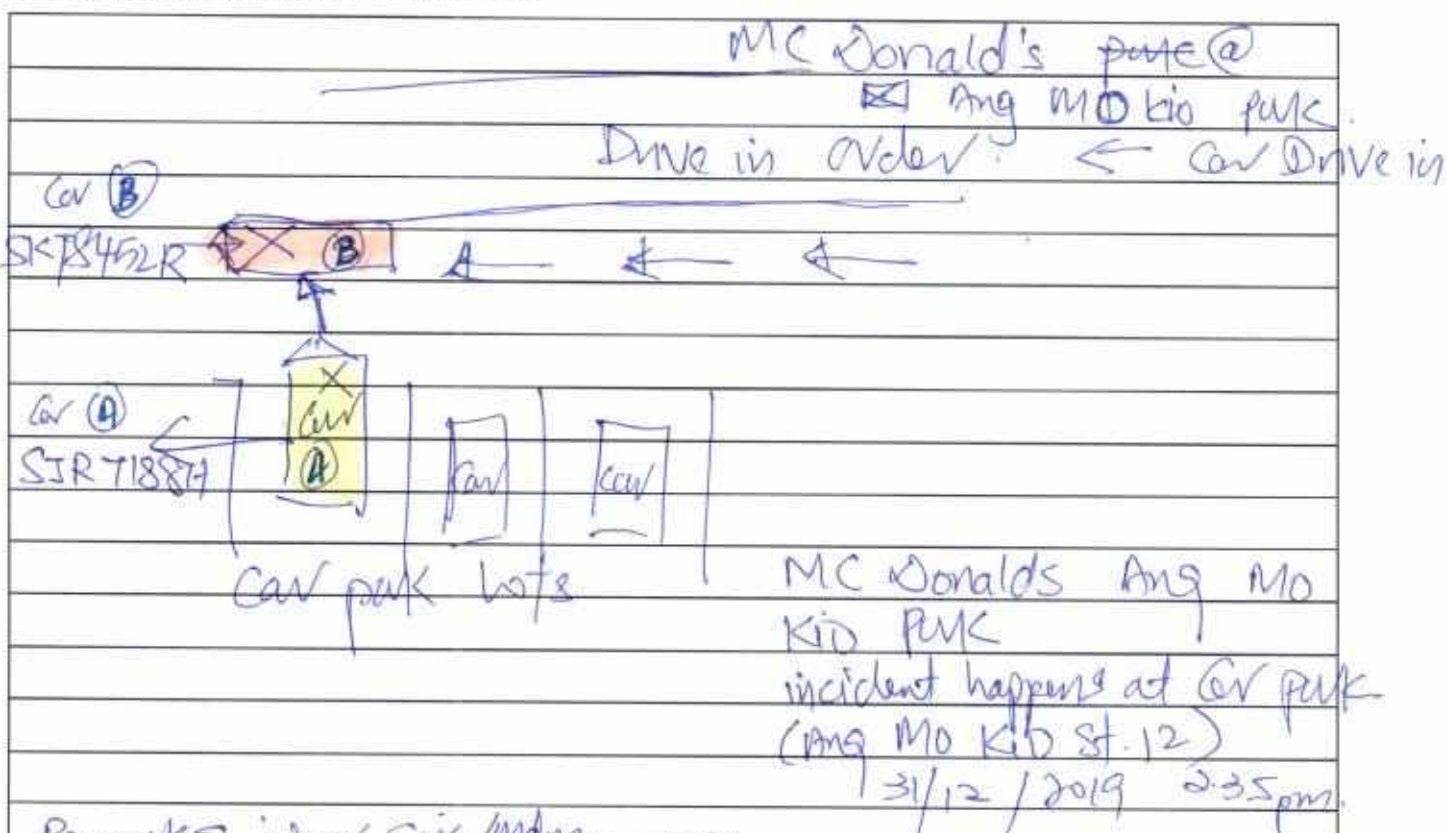 MC Donald's @
Ang MO kio park.
Drive in order. ← Car Drive in
Car B
B
Car A
SJR7188H
Car
A
Car
Car
Car park Lots
MC Donalds Ang Mo
Kio Park
incident happens at Car park
(Ang Mo Kio St. 12)
31/12/2019 2.35pm.